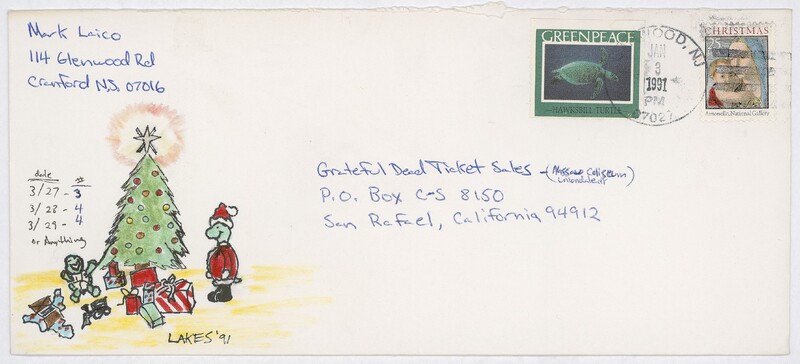 Mark Laico
114 Glenwood Rd
Cranford N.J. 07016
GREENPEACE
HAWKSBILL TURTLE
WOOD, NJ
JAN
3
1991
PM
07027
CHRISTMAS
25
Antonello, National Gallery
Grateful Dead Ticket Sales - (Nassau Coliseum
Uniondale)
P.O. Box C-S 8150
San Rafael, California 94912
date #
3/27 - 3
3/28 - 4
3/29 - 4
or Anything
LAKES '91